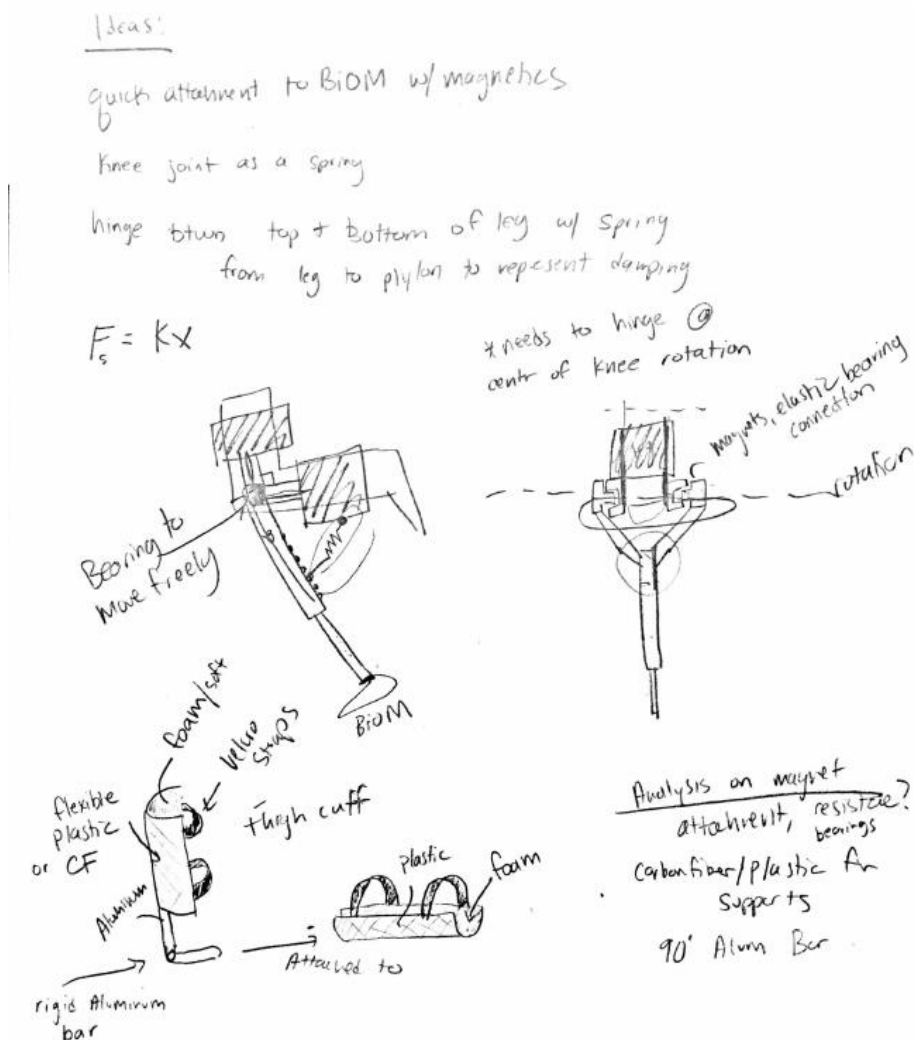 Ideas:
quick attahment to BiOM w/ magnetics
Knee joint as a spring
hinge btwn top + bottom of leg w/ spring
from leg to plylon to repesent damping
Fs = Kx
* needs to hinge @
centr of knee rotation
magnets, elastic, bearing
connection
rotation
Bearing to
move freely
BiOM
foam/soft
velcro
straps
thigh cuff
flexible
plastic
or CF
Aluminum
rigid Aluminum
bar
Attached to
plastic
foam
Analysis on magnet
attahment, resistace?
bearings
carbon fiber/plastic for
supports
90° Alum Bar